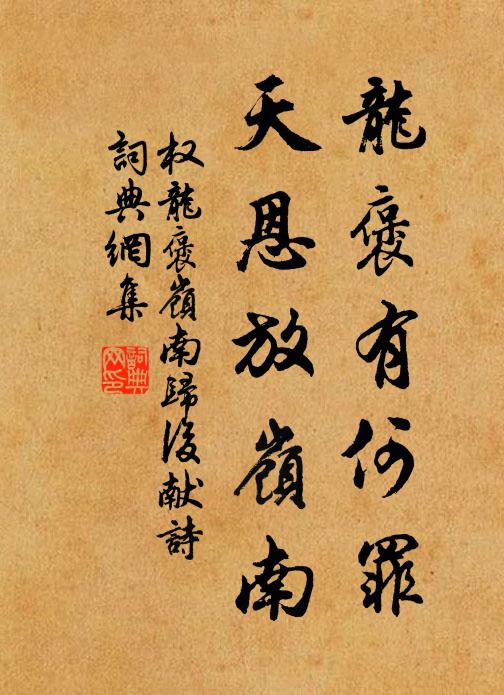 龍褒有何罪
天恩放嶺南
权龍褒嶺南歸後献詩
詞典網集
詞典网印